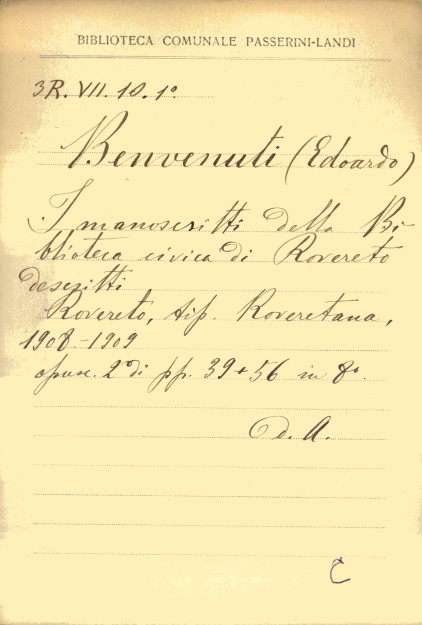 BIBLIOTECA COMUNALE PASSERINI-LANDI
3R. VII. 10. 1°
Benvenuti (Edoardo)
I manoscritti della Bi-
blioteca civica di Rovereto
descritti
Rovereto, tip. Roveretana,
1908-1909
opusc. 2° di pp. 39+56 in 8°.
D. A.
C